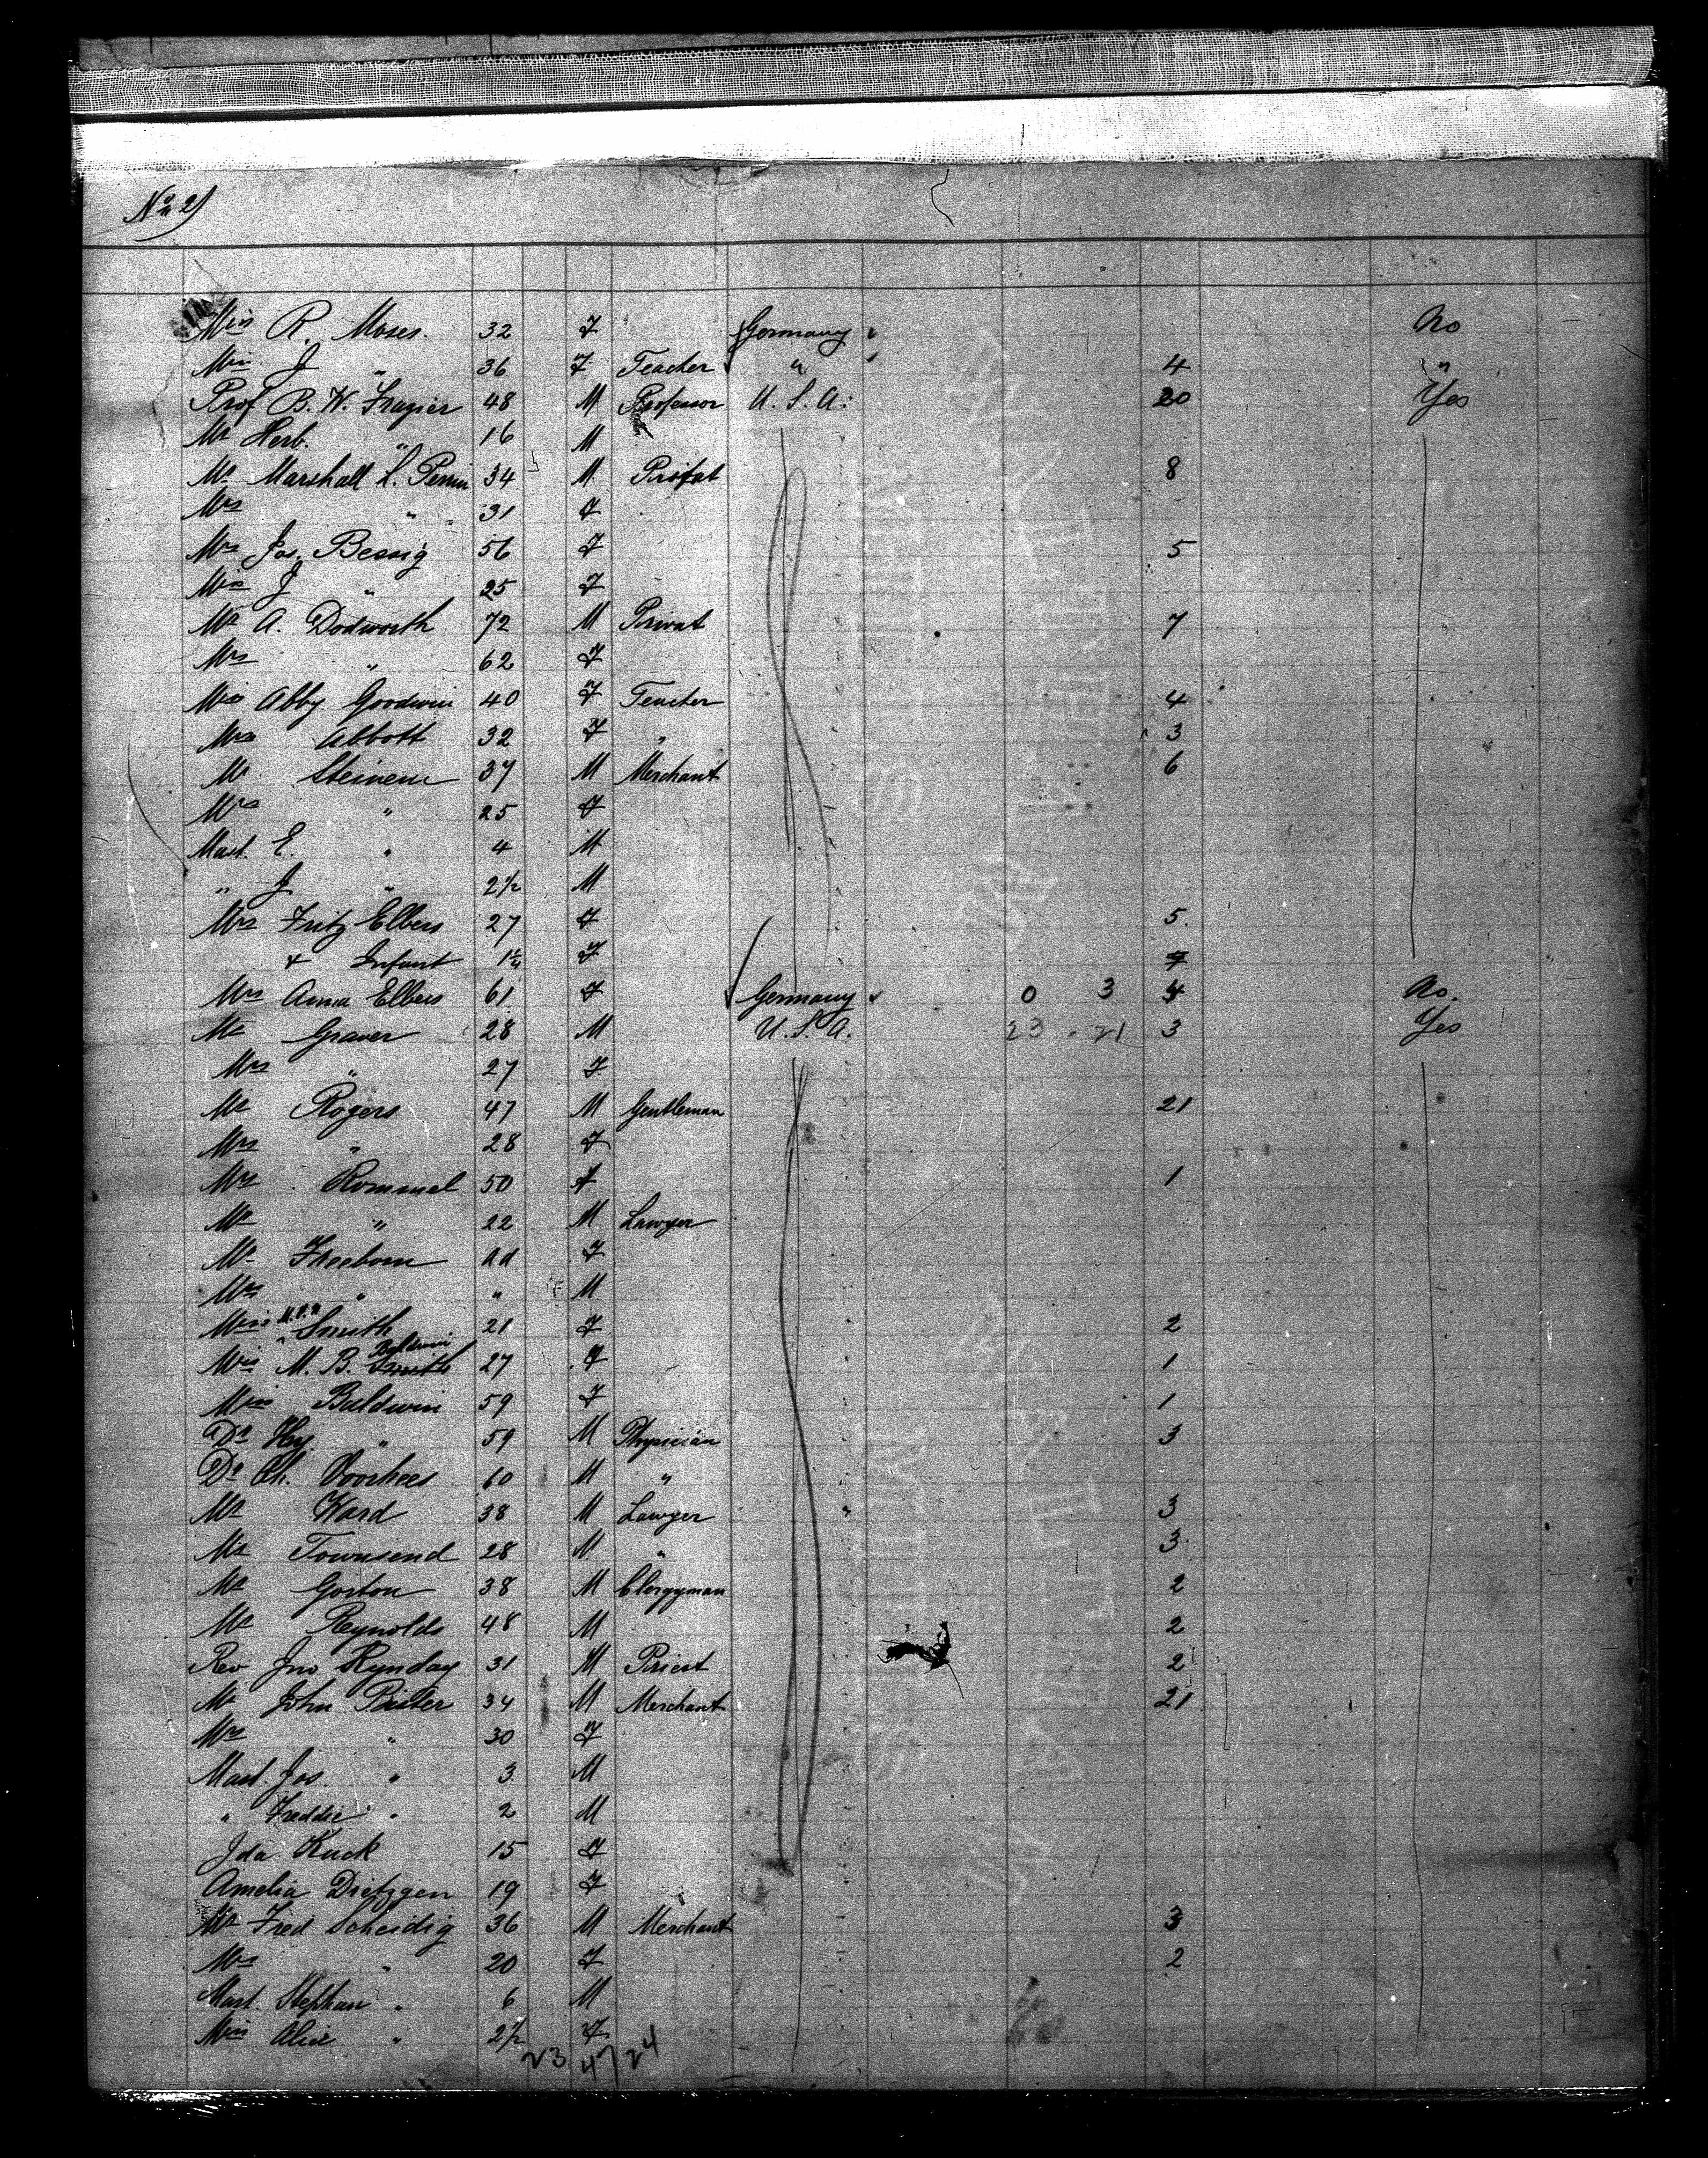 No 2)
Miss R. Moses. 32 F Germany No
Miss J " 36 F Teacher " 4 "
Prof B. W. Frazier 48 M Professor U. S. A. 20 Yes
Mr Herb. " 16 M
Mr Marshall L. Perrin 34 M Privat 8
Mrs " 31 F
Mrs Jos. Bessig 56 F 5
Miss J " 25 F
Mr A. Dodworth 72 M Privat 7
Mrs " 62 F
Miss Abby Goodwin 40 F Teacher 4
Miss Abbott 32 F " 3
Mr Steinem 37 M Merchant 6
Mrs " 25 F
Mast. E. " 4 M
" J " 2½ M
Mrs Fritz Elbers 27 F 5
+ Infant 1¼ F
Mrs Anna Elbers 61 F Germany 0 3 4 No.
Mr Graver 28 M U. S. A. 23 21 3 Yes
Mrs " 27 F
Mr Rogers 47 M Gentleman 21
Mrs " 28 F
Mrs Rommel 50 F 1
Mr " 22 M Lawyer
Mr Freeborn Ad F
Mrs " " M
Miss Smith 21 F 2
Miss M. B. Baldwin 27 F 1
Miss Baldwin 59 F 1
Dr Hey. " 59 M Physician 3
Dr Ch. Voorhees 60 M "
Mr Ward 38 M Lawyer 3
Mr Townsend 28 M " 3
Mr Gorton 38 M Clergyman 2
Mr Reynolds 48 M 2
Rev Jno Rynday 31 M Priest 2
Mr John 34 M Merchant 21
Mrs " 30 F
Mast. Jos. " 3 M
" Freddie " 2 M
Ida Kuck 15 F
Amelia Dietzgen 19 F
Mr Fred Scheidig 36 M Merchant 3
Mrs " 20 F 2
Mast. Stephan " 6 M
Miss Alice " 2½ F
23 47 24